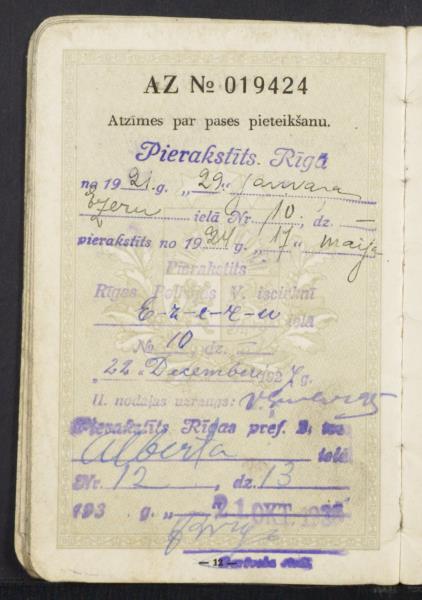 AZ № 019424
Atzīmes par pases pieteikšanu.
Pierakstīts. Rīgā
no 1921. g. „29“ janvara
Ezeru ielā Nr 10, dz. —
pierakstīts no 1924 g. „17“ maija
Pierakstīts
Rīgas Policijas V. iecirknī
E-z-e-r-u ielā
№ 10, dz. —
„22“ Decembrī 1927 g.
II. nodaļas uzraugs:
Pierakstīts Rīgas pref.
Alberta ielā
Nr. 12, dz. 13
193 g. „ 21 OKT. 1932
— 12 —